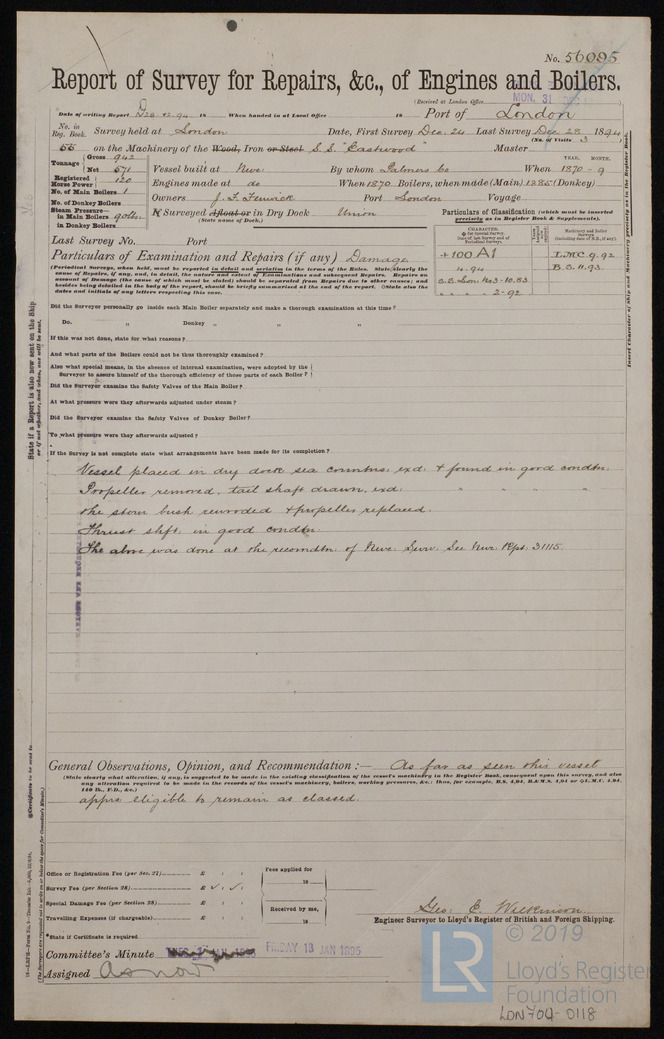 No. 56095
Report of Survey for Repairs, &c., of Engines and Boilers.
(Received at London Office MON. 31
Date of writing Report 28.12.94 18 When handed in at Local Office 18 Port of London
No. in Reg. Book. Survey held at London Date, First Survey Dec. 24 Last Survey Dec 28 1894
(No. of Visits 3 )
55 on the Machinery of the Wood, Iron or Steel S.S. "Eastwood" Master
Tonnage Gross 942 Net 571 Vessel built at Nwc. By whom Palmers Co When 1870 - 9
YEAR. MONTH.
Registered Horse Power 120 Engines made at do When 1870 Boilers, when made (Main) 1285 (Donkey)
No. of Main Boilers 1
No. of Donkey Boilers Owners J. F. Fenwick Port London Voyage
Steam Pressure— in Main Boilers 90 lbs If Surveyed Afloat or in Dry Dock Union
(State name of Dock.)
in Donkey Boilers
Particulars of Classification (which must be inserted precisely as in Register Book & Supplements).
+100 A1 L.M.C. 9.92
4.94 B.S. 11.93
S.S. Lon. No3-10.83
" " " 2-92
Last Survey No. Port
Particulars of Examination and Repairs (if any) Damage
(Periodical Surveys, when held, must be reported in detail and seriatim in the terms of the Rules. State clearly the cause of Repairs, if any, and, in detail, the nature and extent of Examinations and subsequent Repairs. Repairs on account of Damage (the cause of which must be stated) should be separated from Repairs due to other causes; and besides being detailed in the body of the report, should be briefly summarised at the end of the report. State also the dates and initials of any letters respecting this case.
Did the Surveyor personally go inside each Main Boiler separately and make a thorough examination at this time?
Do. " Donkey " " "
If this was not done, state for what reasons?
And what parts of the Boilers could not be thus thoroughly examined?
Also what special means, in the absence of internal examination, were adopted by the Surveyor to assure himself of the thorough efficiency of those parts of each Boiler?
Did the Surveyor examine the Safety Valves of the Main Boiler?
At what pressure were they afterwards adjusted under steam?
Did the Surveyor examine the Safety Valves of Donkey Boiler?
To what pressure were they afterwards adjusted?
If the Survey is not complete state what arrangements have been made for its completion?
Vessel placed in dry dock sea connctns. exd. & found in good condtn.
Propeller removed, tail shaft drawn, exd. " " " "
the stern bush rewooded & propeller replaced.
Thrust shft. in good condtn.
The above was done at the recomdtn. of Nwc. Surv. See Nwc. Rpt. 31115.
General Observations, Opinion, and Recommendation :— As far as seen this vessel
(State clearly what alteration, if any, is suggested to be made in the existing classification of the vessel's machinery in the Register Book, consequent upon this survey, and also any alteration required to be made in the records of the vessel's machinery, boilers, working pressures, &c.: thus, for example, B.S. 4,94, B.&M.S. 4,94 or L.M.C. 4,94, 140 lb., F.D., &c.)
apprs. eligible to remain as classed.
Office or Registration Fee (per Sec. 27) £ : :
Survey Fee (per Section 28) £
Special Damage Fee (per Section 28) £ : :
Travelling Expenses (if chargeable) £ : :
Fees applied for
18
Received by me,
18
Geo: E. Wilkinson
Engineer Surveyor to Lloyd's Register of British and Foreign Shipping.
*State if Certificate is required
Committee's Minute FRIDAY 18 JAN 1895
Assigned as now
State if a Report is also now sent on the Ship or if not, whether, and when, one will be sent.
Insert Character of Ship and Machinery precisely as in the Register Book.
© 2019
LR
Lloyd's Register
Foundation
LDN704-0118